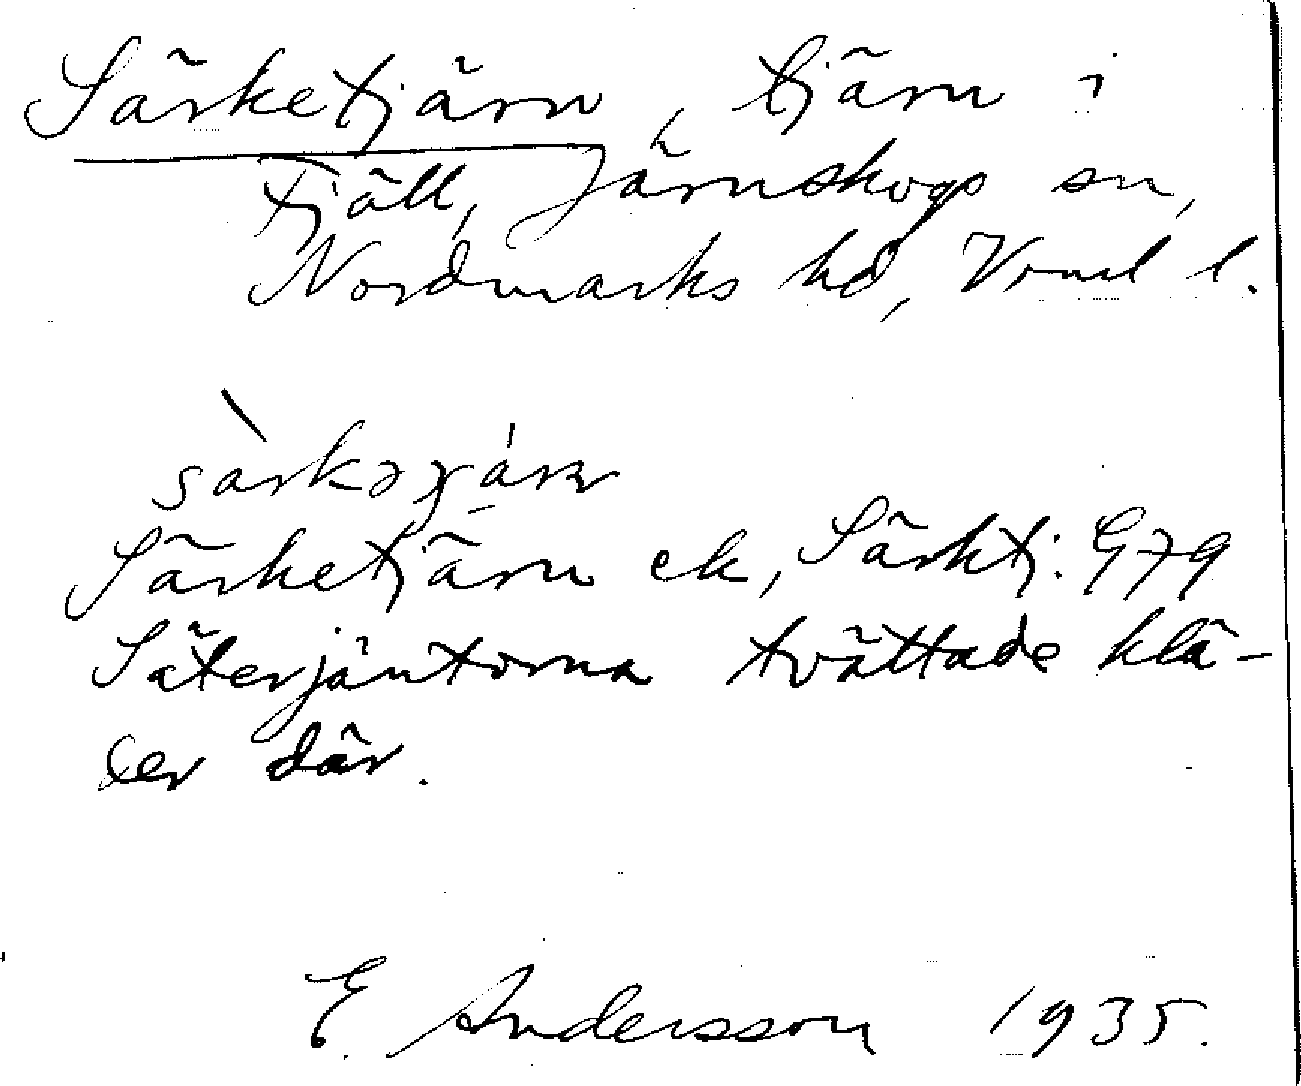 Särketjärn, tjärn i
Fjäll, Järnskogs sn,
Nordmarks hd, Vrml l.
Särketjärn ek, Särktj: G79
Säterjäntorna tvättade klä-
der där.
E. Andersson 1935.